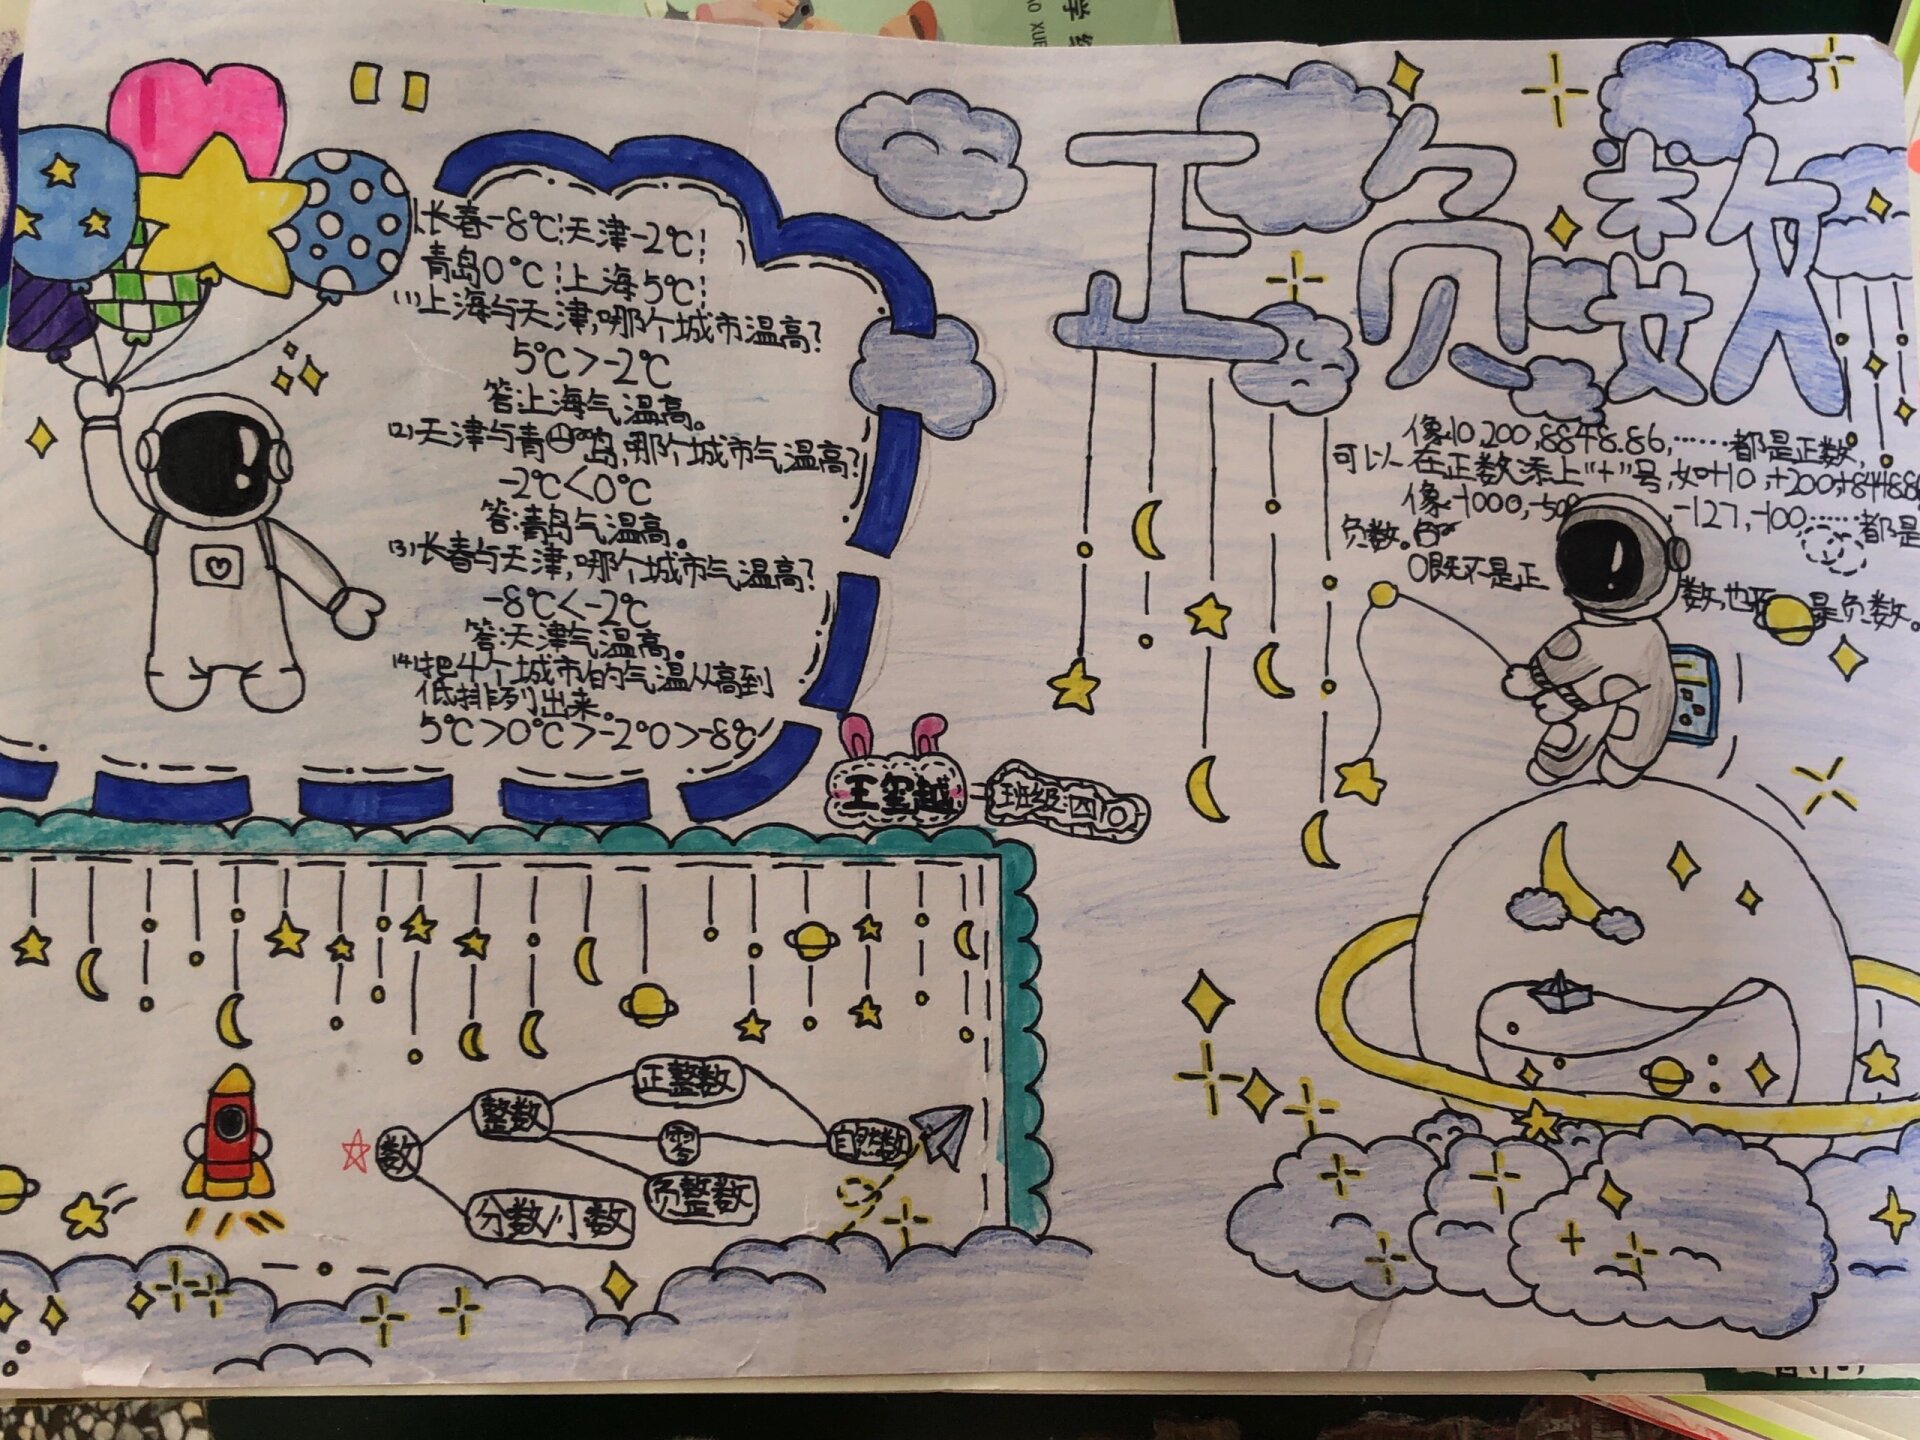 正负数
长春-8℃ 天津-2℃
青岛0℃ 上海5℃
(1)上海与天津,哪个城市温高?
5℃>-2℃
答:上海气温高。
(2)天津与青岛,哪个城市气温高?
-2℃<0℃
答:青岛气温高。
(3)长春与天津,哪个城市气温高?
-8℃<-2℃
答:天津气温高。
(4)把4个城市的气温从高到
低排列出来。
5℃>0℃>-2℃>-8℃
像10,200,8848.86,……都是正数,
可以在正数添上“+”号,如+10,+200,+8448.86
像-1000,-50 -127,-100,……都是
负数。
0既不是正 数,也不 是负数。
王玺越
班级:四
数
整数
正整数
零
负整数
自然数
分数/小数